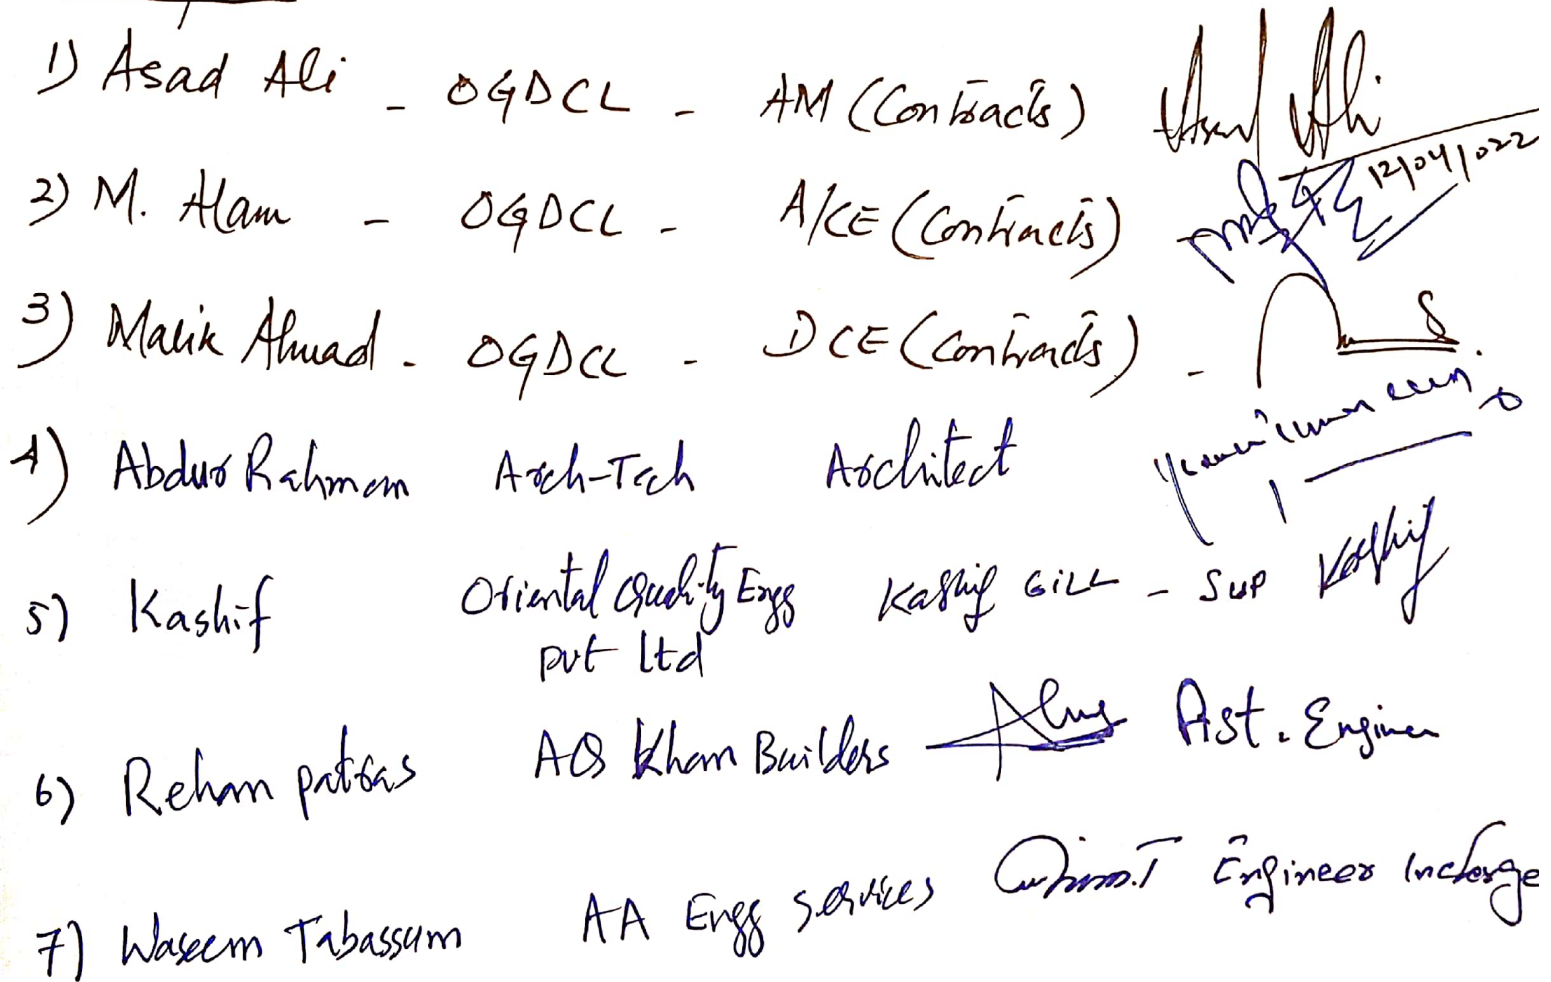 1) Asad Ali - OGDCL - AM (Contracts) Asad Ali
12/04/022
2) M. Alam - OGDCL - A/CE (Contracts)
3) Malik Ahmad - OGDCL - DCE (Contracts) -
4) Abdur Rahman Arch-Tech Architect
5) Kashif Oriental Quality Engg Kashif GILL - Sup Kashif
pvt ltd
6) Rehan patras AQ Khan Builders Ast. Engineer
7) Waseem Tabassum AA Engg services Engineer Incharge